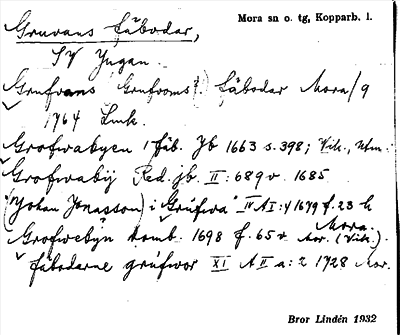 Gruvans fäbodar,
Mora sn o. tg, Kopparb. l.
SV Yngan.
Grufvans (Grufvoms?) fäbodar Mora/9
1764 Lmk.
Grofwabyen 1 fäb. Jb 1663 s. 398; Vik., Utm.
Grofwabij Red. jb. II: 689v. 1685
(Johan Jonasson) i Grufwa II AI:4 1679 f. 23 h
Mora.
Grofwebyn komb. 1698 f. 65v Mor. (Vik.).
fäbodarne grufwor XI AII a: 2 1728 Mor.
Bror Lindén 1932